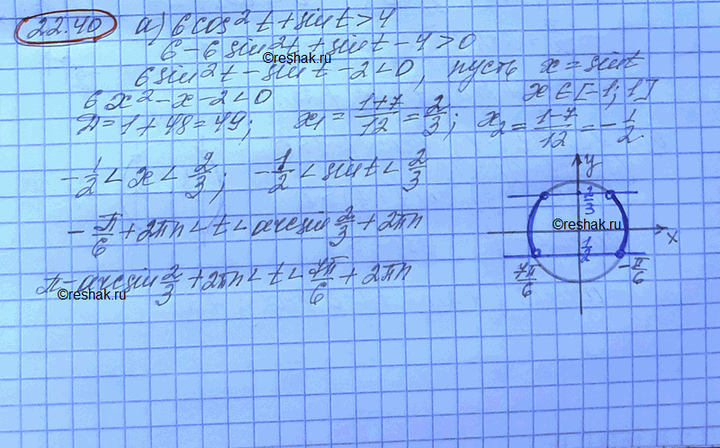 22.40 а) 6cos²t + sint > 4
6 - 6sin²t + sint - 4 > 0
©reshak.ru
6sin²t - sint - 2 < 0, пусть x = sint
6x² - x - 2 < 0 x ∈ [-1; 1]
D = 1 + 48 = 49; x₁ = (1+7)/12 = 2/3; x₂ = (1-7)/12 = -1/2.
-1/2 < x < 2/3; -1/2 < sint < 2/3
-π/6 + 2πn < t < arcsin 2/3 + 2πn
π - arcsin 2/3 + 2πn < t < 7π/6 + 2πn
©reshak.ru
y
2/3
©reshak.ru
x
1/2
7π/6 -π/6